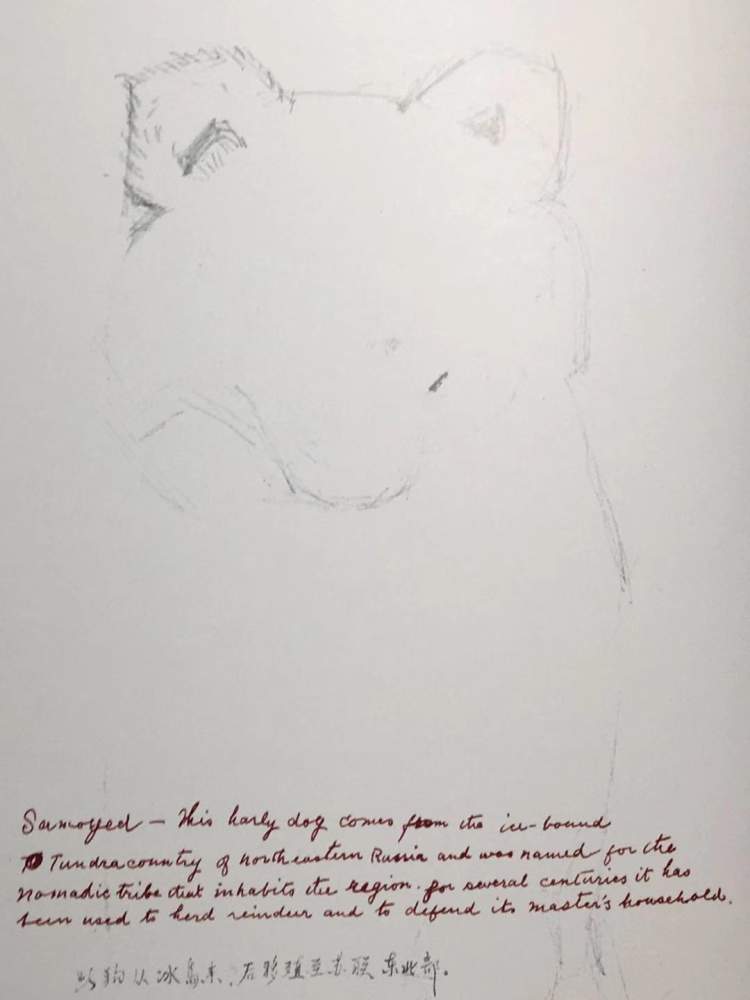 Samoyed — This harly dog comes from the ice-bound
Tundra country of northeastern Russia and was named for the
nomadic tribe that inhabits the region. for several centuries it has
been used to herd reindeer and to defend its master's household.
此狗从冰岛来,后移殖至苏联东北部.